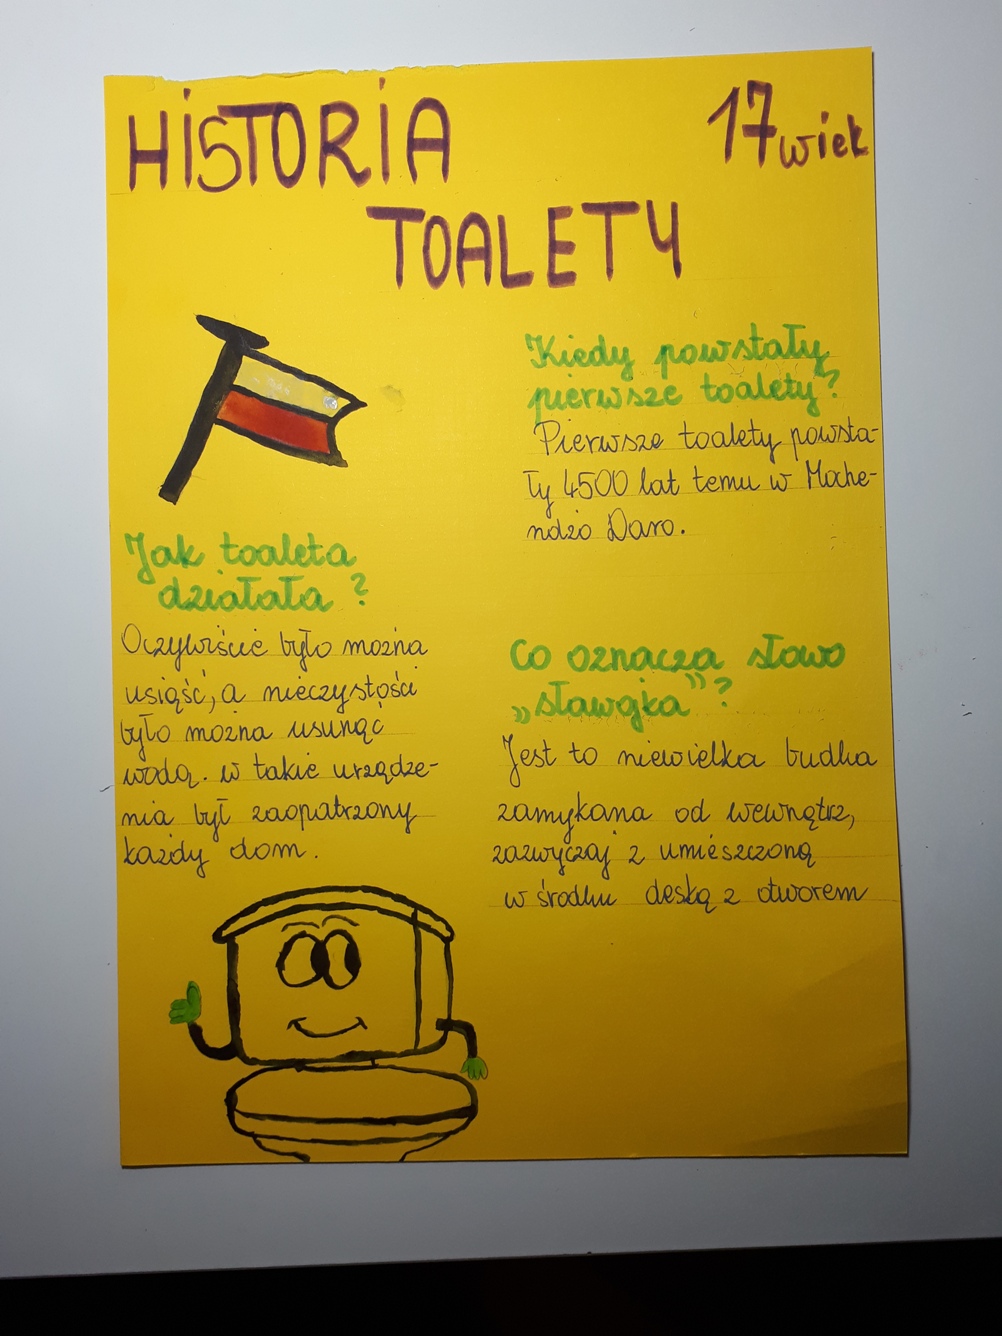 HISTORIA
17 wiek
TOALETY
Kiedy powstały
pierwsze toalety?
Pierwsze toalety powsta-
ły 4500 lat temu w Moche-
ndżo Daro.
Jak toaleta
działała?
Oczywiście było można
usiąść, a nieczystości
było można usunąć
wodą. w takie urządze-
nia był zaopatrzony
każdy dom.
Co oznacza słowo
„sławojka”?
Jest to niewielka budka
zamykana od wewnątrz,
zazwyczaj z umieszczoną
w środku deską z otworem